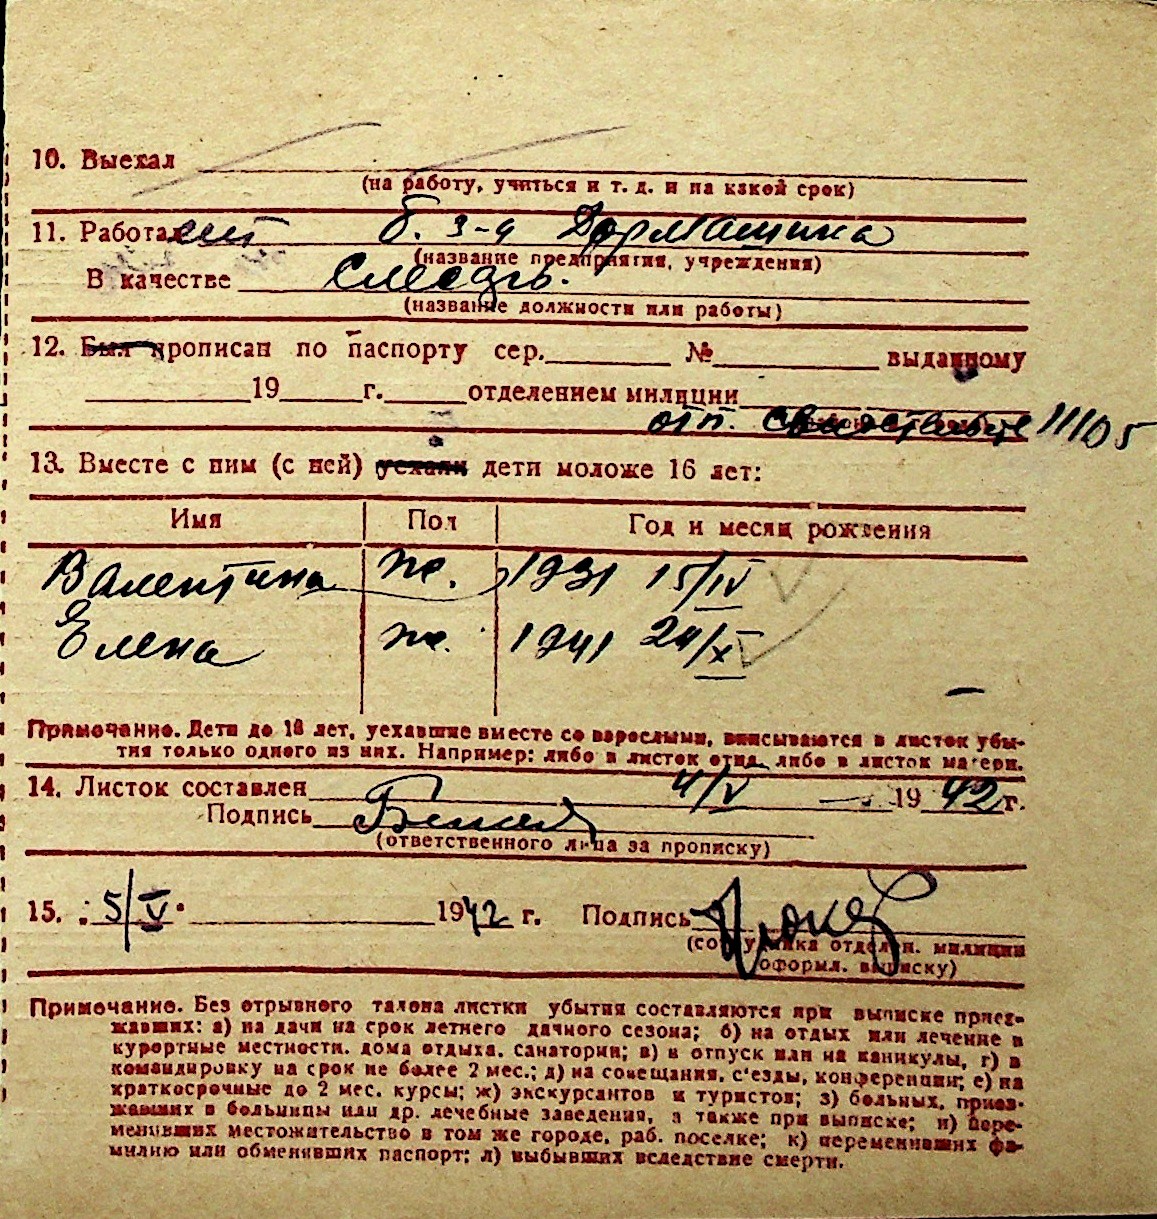 10. Выехал
(на работу, учиться и т. д. и на какой срок)
11. Работает б. з-д Дормашина
(название предприятия, учреждения)
В качестве слесарь.
(название должности или работы)
12. Был прописан по паспорту сер. № выданному
19 г. отделением милиции
отп. свидетельств 11105
13. Вместе с ним (с ней) уехали дети моложе 16 лет:
Имя Пол Год и месяц рождения
Валентина ж. 1931 15/IV
Елена ж. 1941 24/XI
Примечание. Дети до 16 лет, уехавшие вместе со взрослыми, вписываются в листок убы-
тия только одного из них. Например: либо в листок отца, либо в листок матери.
14. Листок составлен 4/V 1942 г.
Подпись
(ответственного лица за прописку)
15. 5/V 1942 г. Подпись
(сотрудника отделен. милиции
оформл. выписку)
Примечание. Без отрывного талона листки убытия составляются при выписке приез-
жавших: а) на дачи на срок летнего дачного сезона; б) на отдых или лечение в
курортные местности, дома отдыха, санатории; в) в отпуск или на каникулы, г) в
командировку на срок не более 2 мес.; д) на совещания, с'езды, конференции; е) на
краткосрочные до 2 мес. курсы; ж) экскурсантов и туристов; з) больных, приез-
жавших в больницы или др. лечебные заведения, а также при выписке; и) пере-
менивших местожительство в том же городе, раб. поселке; к) переменивших фа-
милию или обменявших паспорт; л) выбывших вследствие смерти.